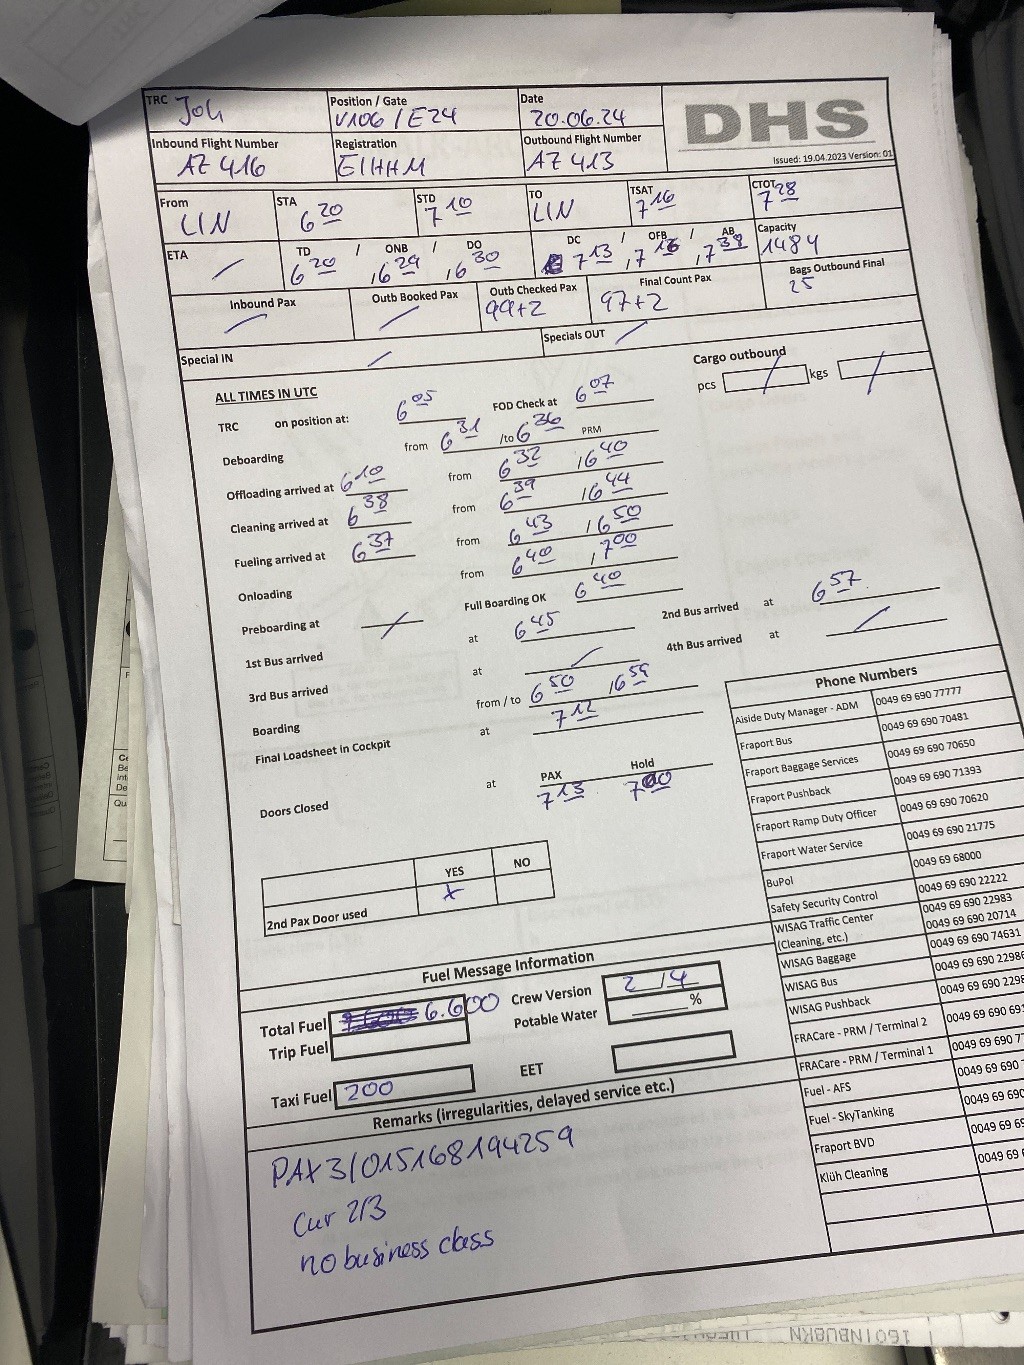 TRC Joh Position / Gate V106 / E24 Date 20.06.24 DHS
Issued: 19.04.2023 Version: 01
Inbound Flight Number AZ 416 Registration EIHHM Outbound Flight Number AZ 413
From LIN STA 6 20 STD 7 10 TO LIN TSAT 7 16 CTOT 7 28
ETA / TD / ONB / DO 6 20 , 6 29 , 6 30 DC / OFB / AB 7 13 , 7 16 , 7 38 Capacity 1484
Inbound Pax / Outb Booked Pax / Outb Checked Pax 99+2 Final Count Pax 97+2 Bags Outbound Final 25
Special IN / Specials OUT /
ALL TIMES IN UTC Cargo outbound
pcs / kgs /
TRC on position at: 6 05 FOD Check at 6 07
Deboarding from 6 31 /to 6 36 PRM
Offloading arrived at 6 10 from 6 32 , 6 40
Cleaning arrived at 6 38 from 6 39 , 6 44
Fueling arrived at 6 37 from 6 43 , 6 50
Onloading from 6 40 , 7 00
Preboarding at / Full Boarding OK 6 40
1st Bus arrived at 6 45 2nd Bus arrived at 6 57
3rd Bus arrived at / 4th Bus arrived at /
Boarding from / to 6 50 , 6 59
Final Loadsheet in Cockpit at 7 12
PAX Hold
Doors Closed at 7 13 7 00
YES NO
2nd Pax Door used x
Phone Numbers
Aiside Duty Manager - ADM 0049 69 690 77777
Fraport Bus 0049 69 690 70481
Fraport Baggage Services 0049 69 690 70650
Fraport Pushback 0049 69 690 71393
Fraport Ramp Duty Officer 0049 69 690 70620
Fraport Water Service 0049 69 690 21775
BuPol 0049 69 68000
Safety Security Control 0049 69 690 22222
WISAG Traffic Center 0049 69 690 22983
(Cleaning, etc.) 0049 69 690 20714
WISAG Baggage 0049 69 690 74631
WISAG Bus 0049 69 690 2298
WISAG Pushback 0049 69 690 229
FRACare - PRM / Terminal 2 0049 69 690 69
FRACare - PRM / Terminal 1 0049 69 690 7
Fuel - AFS 0049 69 690
Fuel - SkyTanking 0049 69 690
Fraport BVD 0049 69 69
Klüh Cleaning 0049 69 6
Fuel Message Information
Total Fuel 6.600 Crew Version 2 / 4
Trip Fuel Potable Water %
Taxi Fuel 200 EET
Remarks (irregularities, delayed service etc.)
PAX 3/015168194259
Cur 2/3
no business class